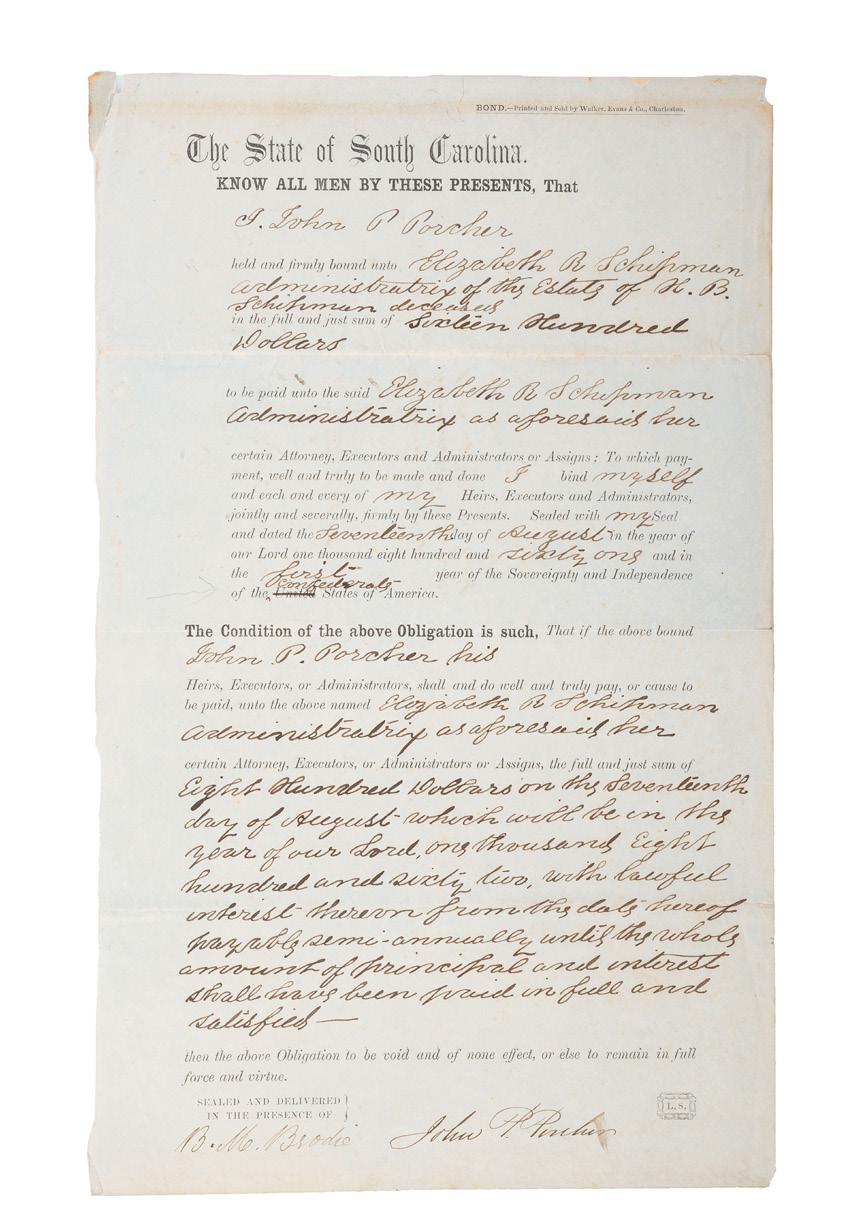 BOND.—Printed and Sold by Walker, Evans & Co., Charleston.
The State of South Carolina.
KNOW ALL MEN BY THESE PRESENTS, That
I. John P Porcher
held and firmly bound unto Elizabeth R Schipman
Administratrix of the Estate of H. B.
Schipman deceased
in the full and just sum of Sixteen Hundred
Dollars
to be paid unto the said Elizabeth R Schipman
Administratrix as aforesaid her
certain Attorney, Executors and Administrators or Assigns; To which pay-
ment, well and truly to be made and done I bind myself
and each and every of my Heirs, Executors and Administrators,
jointly and severally, firmly by these Presents. Sealed with my Seal
and dated the Seventeenth day of August in the year of
our Lord one thousand eight hundred and sixty one and in
the first year of the Sovereignty and Independence
Confederate
of the United States of America.
The Condition of the above Obligation is such, That if the above bound
John P. Porcher his
Heirs, Executors, or Administrators, shall and do well and truly pay, or cause to
be paid, unto the above named Elizabeth R Schipman
Administratrix as aforesaid her
certain Attorney, Executors, or Administrators or Assigns, the full and just sum of
Eight Hundred Dollars on the Seventeenth
day of August which will be in the
year of our Lord, one thousand Eight
hundred and sixty two, with lawful
interest thereon from the date hereof
payable semi-annually until the whole
amount of principal and interest
shall have been paid in full and
satisfied—
then the above Obligation to be void and of none effect, or else to remain in full
force and virtue.
SEALED AND DELIVERED
IN THE PRESENCE OF
L. S.
B. M. Brodie John P. Porcher